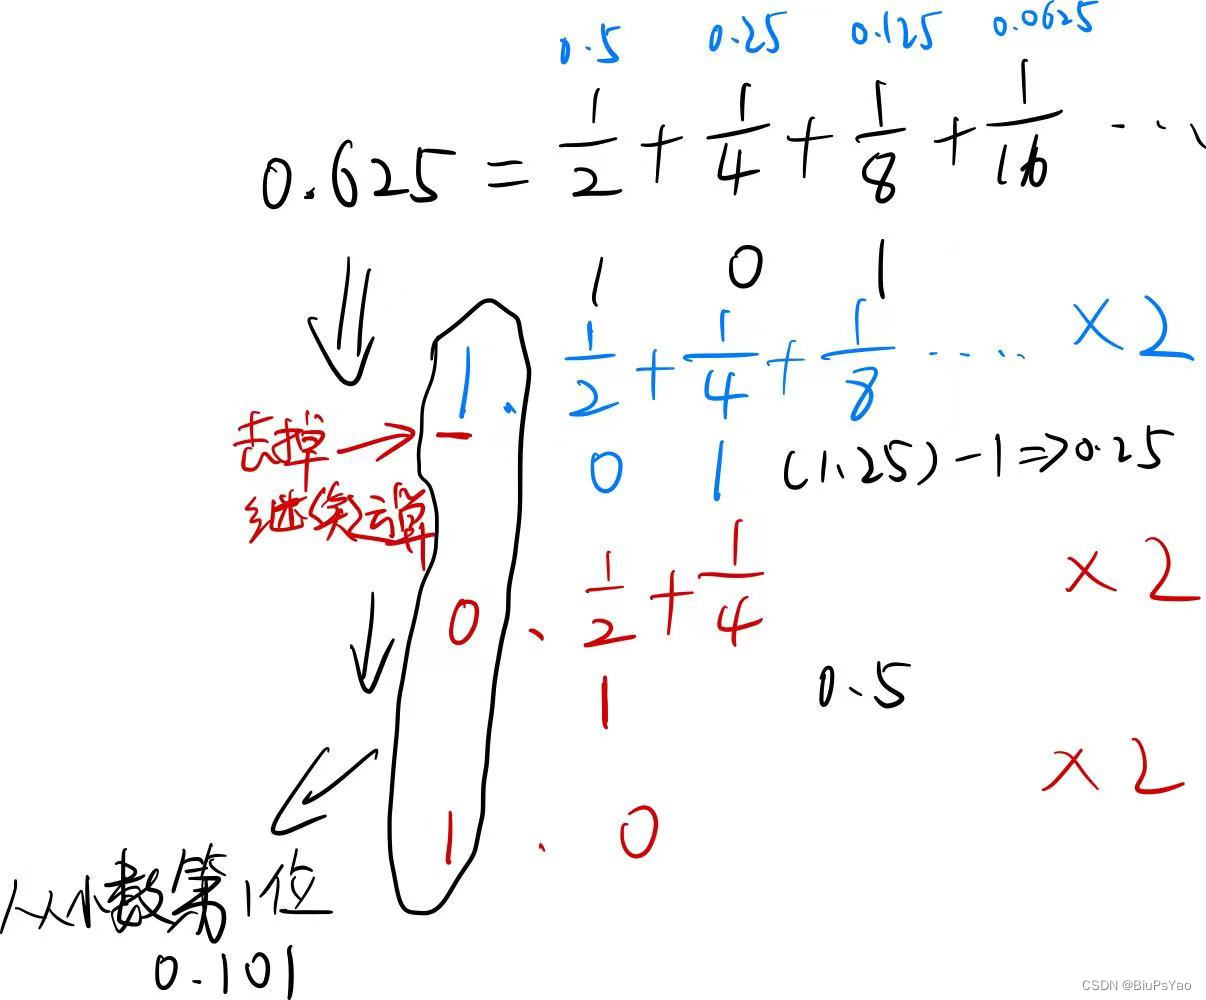 0.5 0.25 0.125 0.0625
0.625 = 1/2 + 1/4 + 1/8 + 1/16 ...
1 0 1
1. 1/2 + 1/4 + 1/8 ..... ×2
去掉
0 1 (1.25) -1 => 0.25
继续运算
0. 1/2 + 1/4 ×2
1 0.5
×2
1. 0
从小数第1位
0.101
CSDN @BiuPsYao